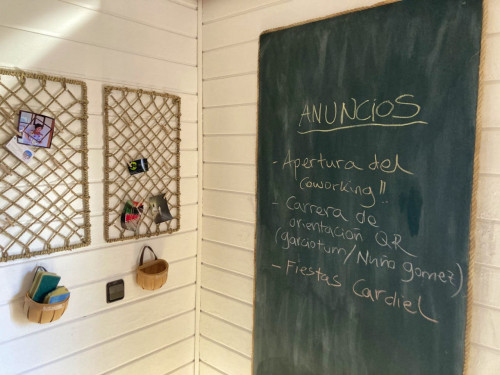 ANUNCIOS
- Apertura del
coworking!!
- Carrera de
orientación QR
(garciotum/Nuño gomez)
- Fiestas Cardiel